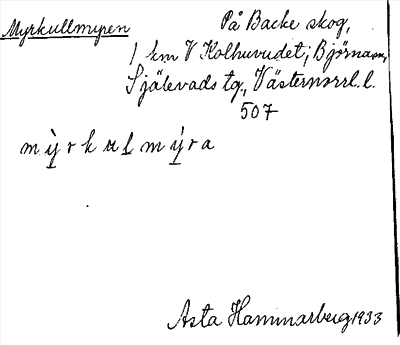 Myrkullmyren På Backe skog,
1 km V Kolhuvudet; Björnam,
Själevads tg., Västernorrl. l.
507
mỳrkul̠mýra
Asta Hammarberg 1933